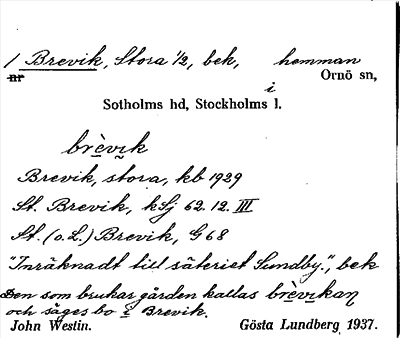 / Brevik, Stora 1/2, bek, hemman
nr i Ornö sn,
Sotholms hd, Stockholms l.
brèvı̣k
Brevik, stora, kb 1929
St. Brevik, kSj 62. 12. III
St. (o.L.) Brevik, G 68
"Inräknadt till säteriet Sundby.", bek
Den som brukar gården kallas brèvıkaṇ
och säges bo i Brevik.
John Westin. Gösta Lundberg 1937.